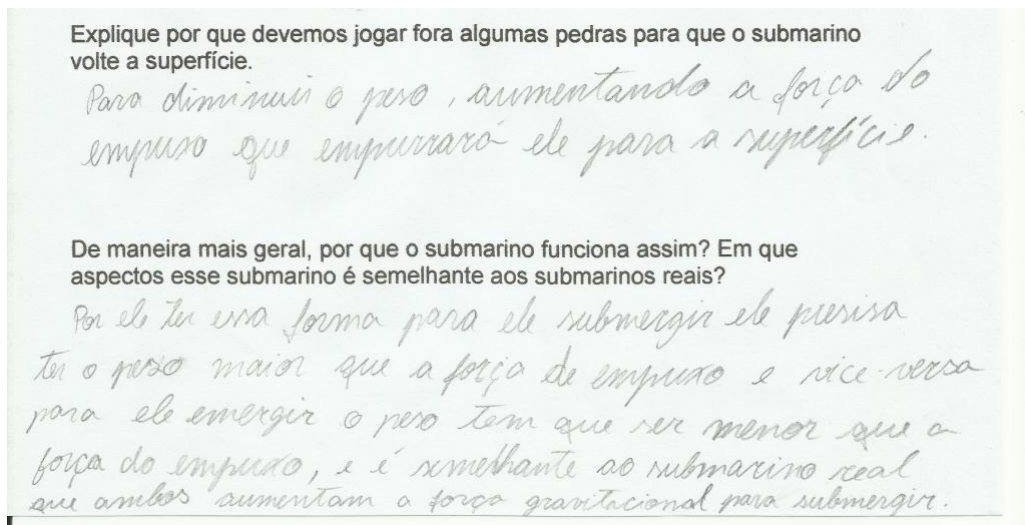 Explique por que devemos jogar fora algumas pedras para que o submarino
volte a superfície.
Para diminuir o peso, aumentando a força do
empuxo que empurrará ele para a superfície.
De maneira mais geral, por que o submarino funciona assim? Em que
aspectos esse submarino é semelhante aos submarinos reais?
Por ele ter essa forma para ele submergir ele presisa
ter o peso maior que a força de empuxo e vice-versa
para ele emergir o peso tem que ser menor que a
força do empuxo, e é semelhante ao submarino real
que ambos aumentam a força gravitacional para submergir.